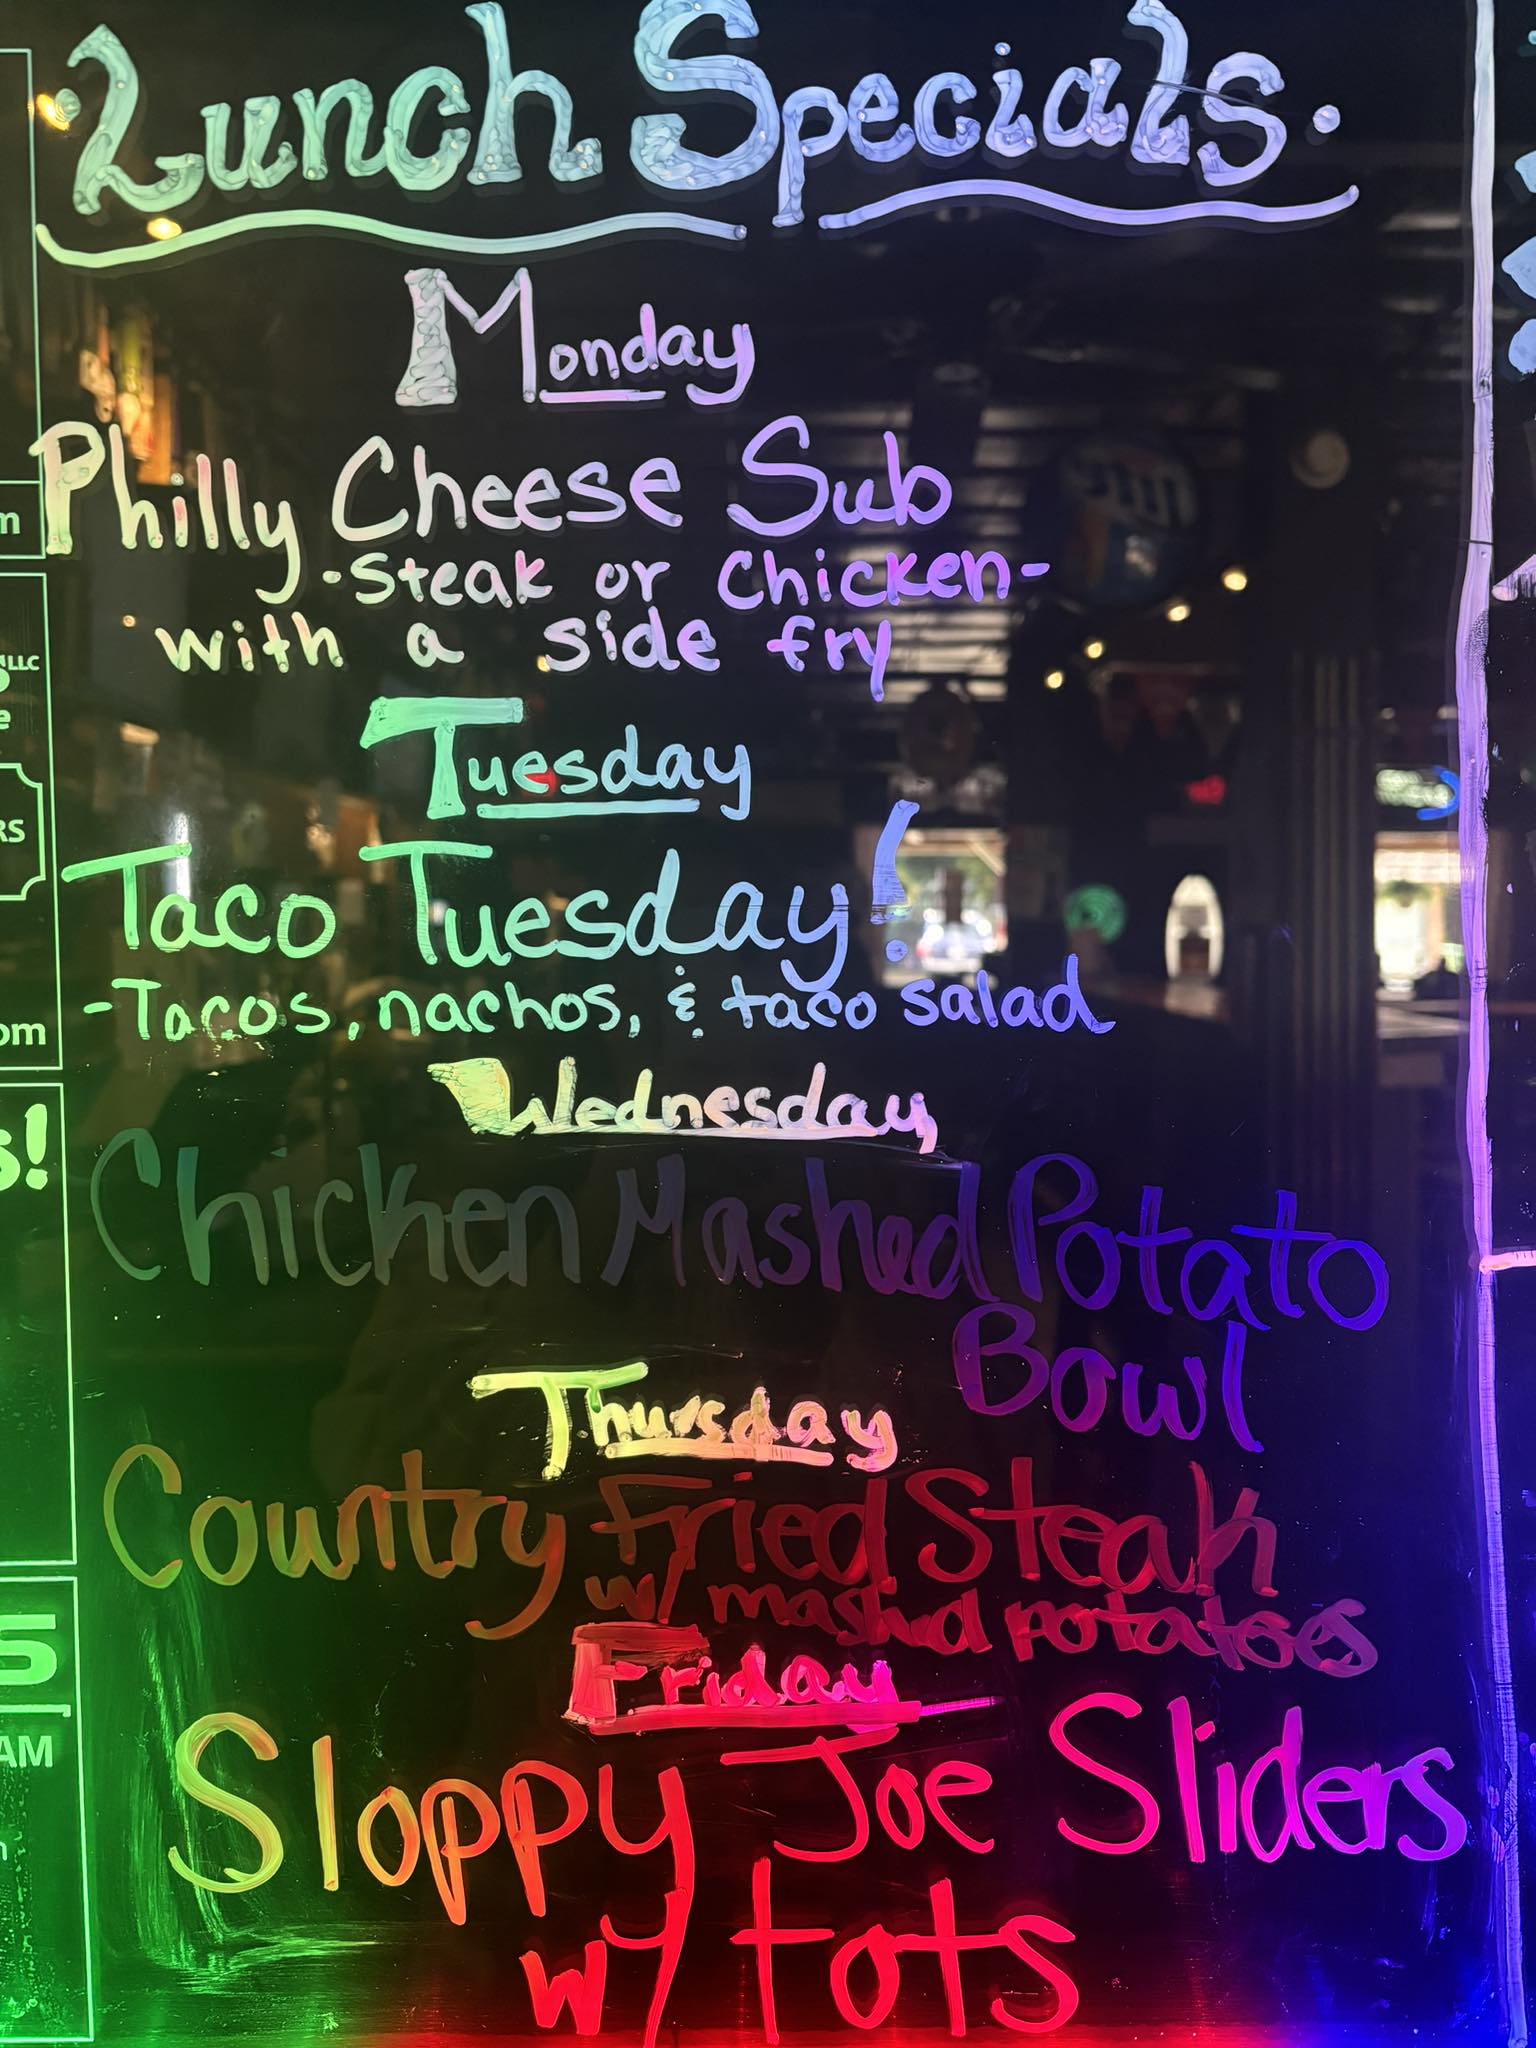 Lunch Specials.
Monday
Philly Cheese Sub
-Steak or Chicken-
with a side fry
Tuesday
Taco Tuesday!
-Tacos, nachos, & taco salad
Wednesday
Chicken Mashed Potato
Bowl
Thursday
Country Fried Steak
w/ mashed potatoes
Friday
Sloppy Joe Sliders
w/ tots
LLC
RS
om
s!
AM